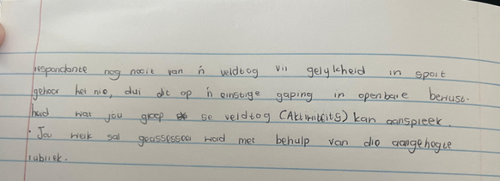 respondante nog nooit van 'n veldtog vir gelykheid in sport
gehoor het nie, dui dit op 'n einstige gaping in openbare bewust-
heid wat jou groep se veldtog (Aktiwiteit 5) kan aanspreek.
· Jou werk sal geassesseer word met behulp van die aangehegte
rubriek.